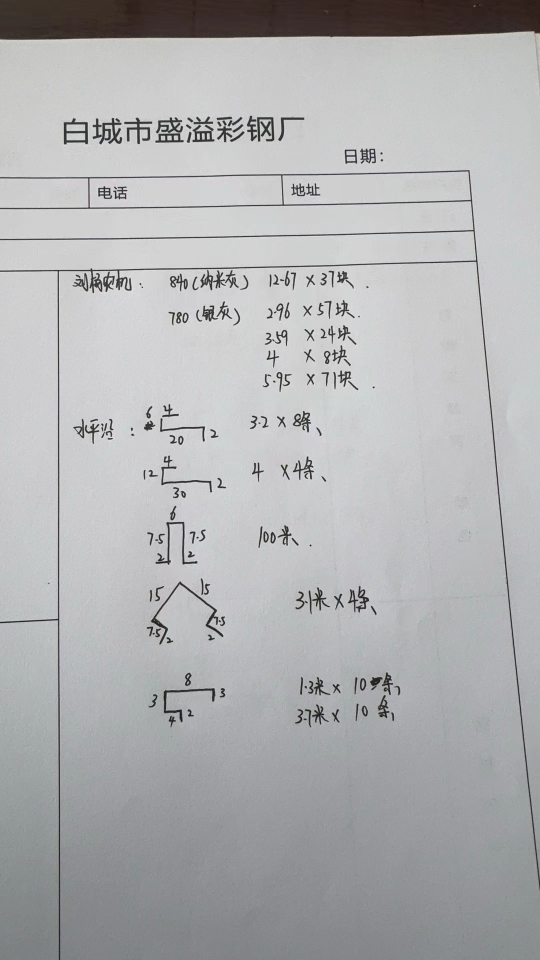 白城市盛溢彩钢厂
日期：
电话 地址
刘杨农机： 840（纳米灰） 12.67 × 37块.
780（银灰） 2.96 × 57块.
3.59 × 24块
4 × 8块
5.95 × 71块.
水平沿： 6 4 20 2 3.2 × 8条、
12 4 30 2 4 × 4条、
6 7.5 7.5 2 2 100米.
15 15 7.5 2 7.5 2 3.1米 × 4条、
8 3 3 4 2 1.3米 × 10条、
3.7米 × 10条、